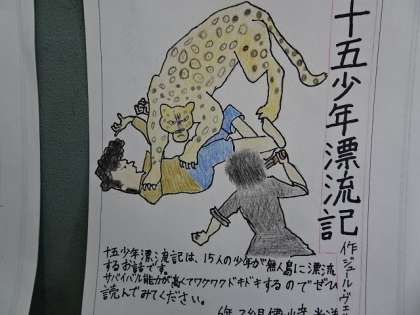 十五少年漂流記
作ジュールヴェ
十五少年漂流記は、15人の少年が無人島に漂流
するお話です。
サバイバル能力が高くてワクワクドキドキするのでぜひ
読んでみてください。
6年2組